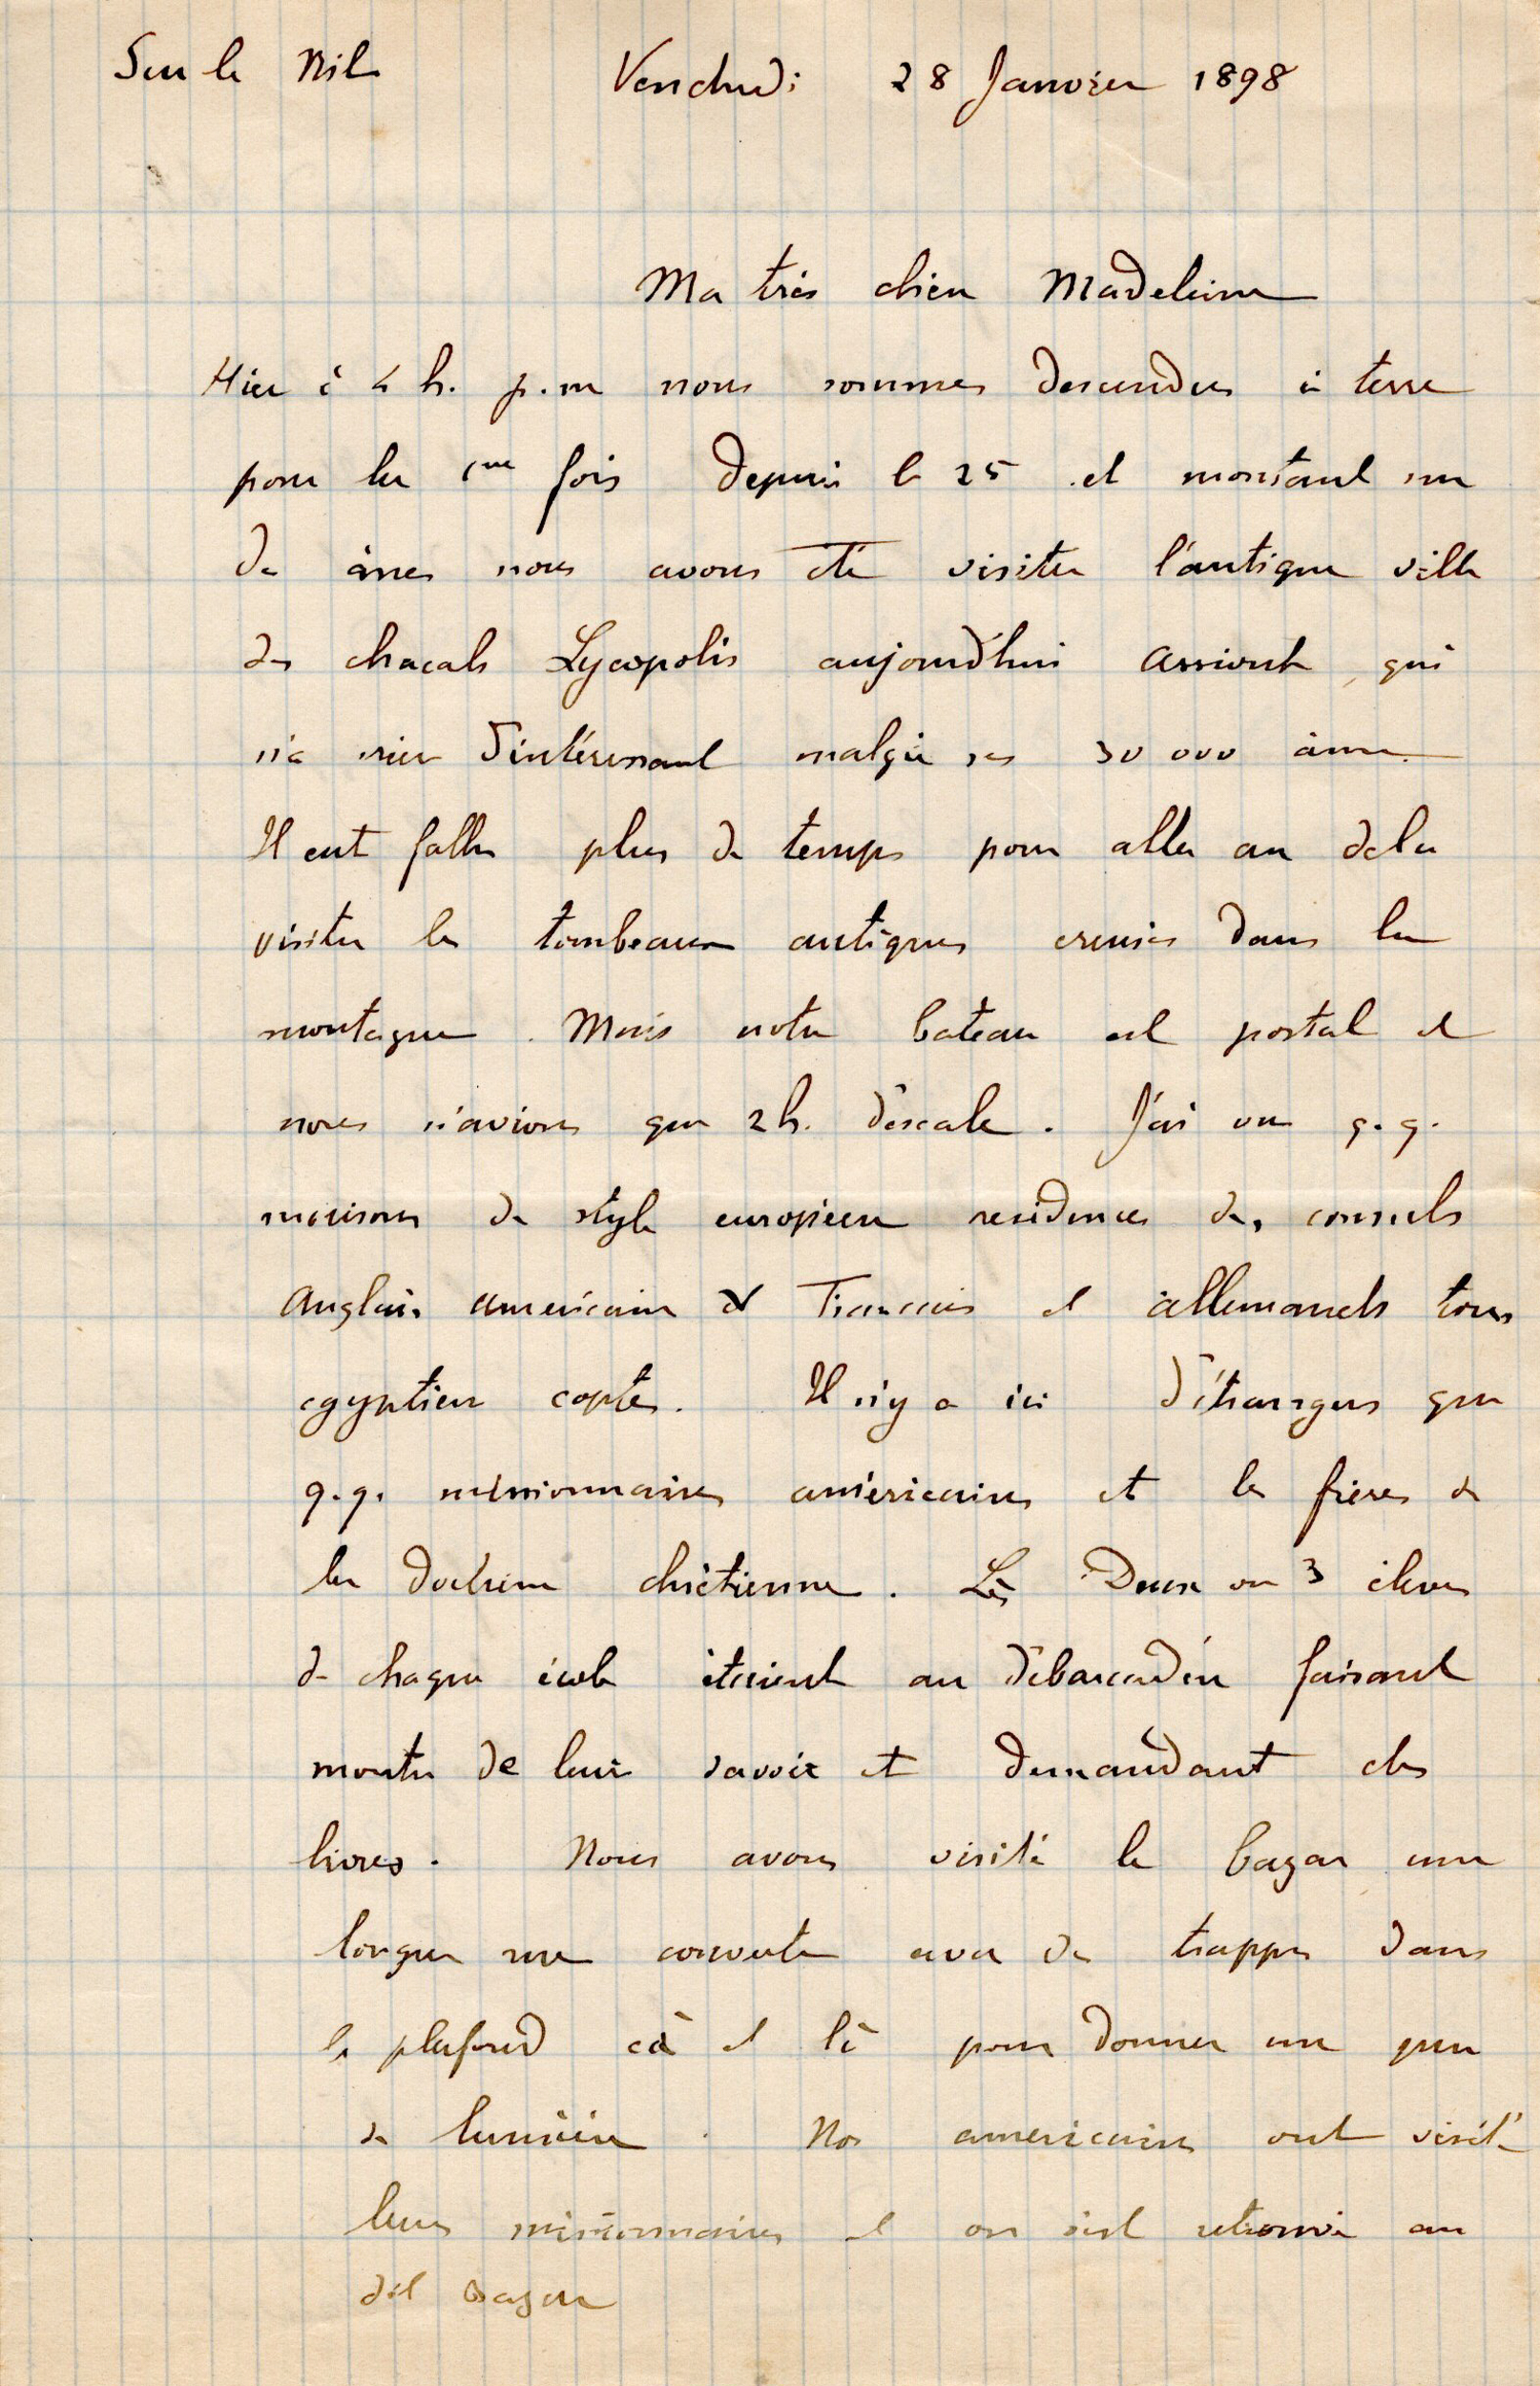 Sur le Nil Vendredi 28 Janvier 1898
Ma très chère Madeleine
Hier à 4 h. p.m nous sommes descendus à terre
pour la 1ere fois depuis le 25 et montant sur
de ânes nous avons été visiter l'antique ville
des chacals Lycopolis aujourd'hui Assiout, qui
n'a rien d'intéressant malgré ses 30 000 âmes.
Il eut fallu plus de temps pour aller au dela
visiter les tombeaux antiques creusés dans la
montagne. Mais notre bateau est postal et
nous n'avions que 2h. d'escale. J'ai vu q.q.
maisons de style européen residences des consuls
Anglais americain et Francais et allemands tous
egyptien coptes. Il n'y a ici d'étrangers que
q.q. missionnaires américains et les frères de
la doctrine chrétienne. Les Deux ou 3 élèves
de chaque école étaient au débarcadère faisant
montre de leur savoir et demandant des
livres. Nous avons visité le bazar une
longue rue couverte avec de trappes dans
le plafond cà et là pour donner un peu
de lumière. Nos americains ont visité
leurs missionnaires et on s'est retrouvé au
dit bazar